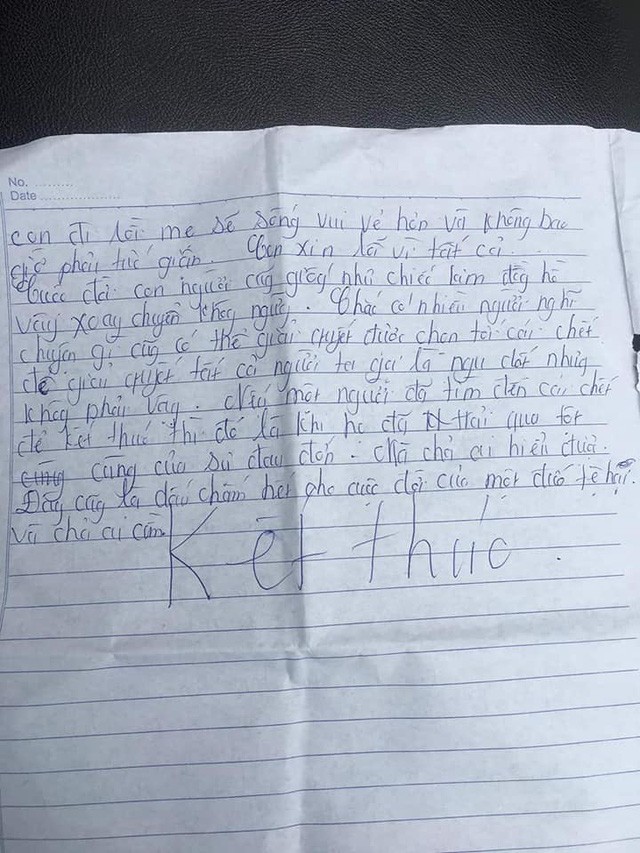 No. ..........
Date ....................
con đi rồi mẹ sẽ sống vui vẻ hơn và không bao
giờ phải tức giận. Con xin lỗi vì tất cả.
Cuộc đời con người cũng giống như chiếc kim đồng hồ
vậy xoay chuyển không ngừng. Chắc có nhiều người nghĩ
chuyện gì cũng có thể giải quyết được chọn tới cái chết
để giải quyết tất cả người ta gọi là ngu dốt nhưng
không phải vậy. Nếu một người đã tìm đến cái chết
để kết thúc thì đó là khi họ đã trải qua tột
cùng của sự đau đớn. Mà chả ai hiểu được.
Đây cũng là dấu chấm hết cho cuộc đời của một đứa tệ hại.
Và chả ai cần.
Kết thúc.